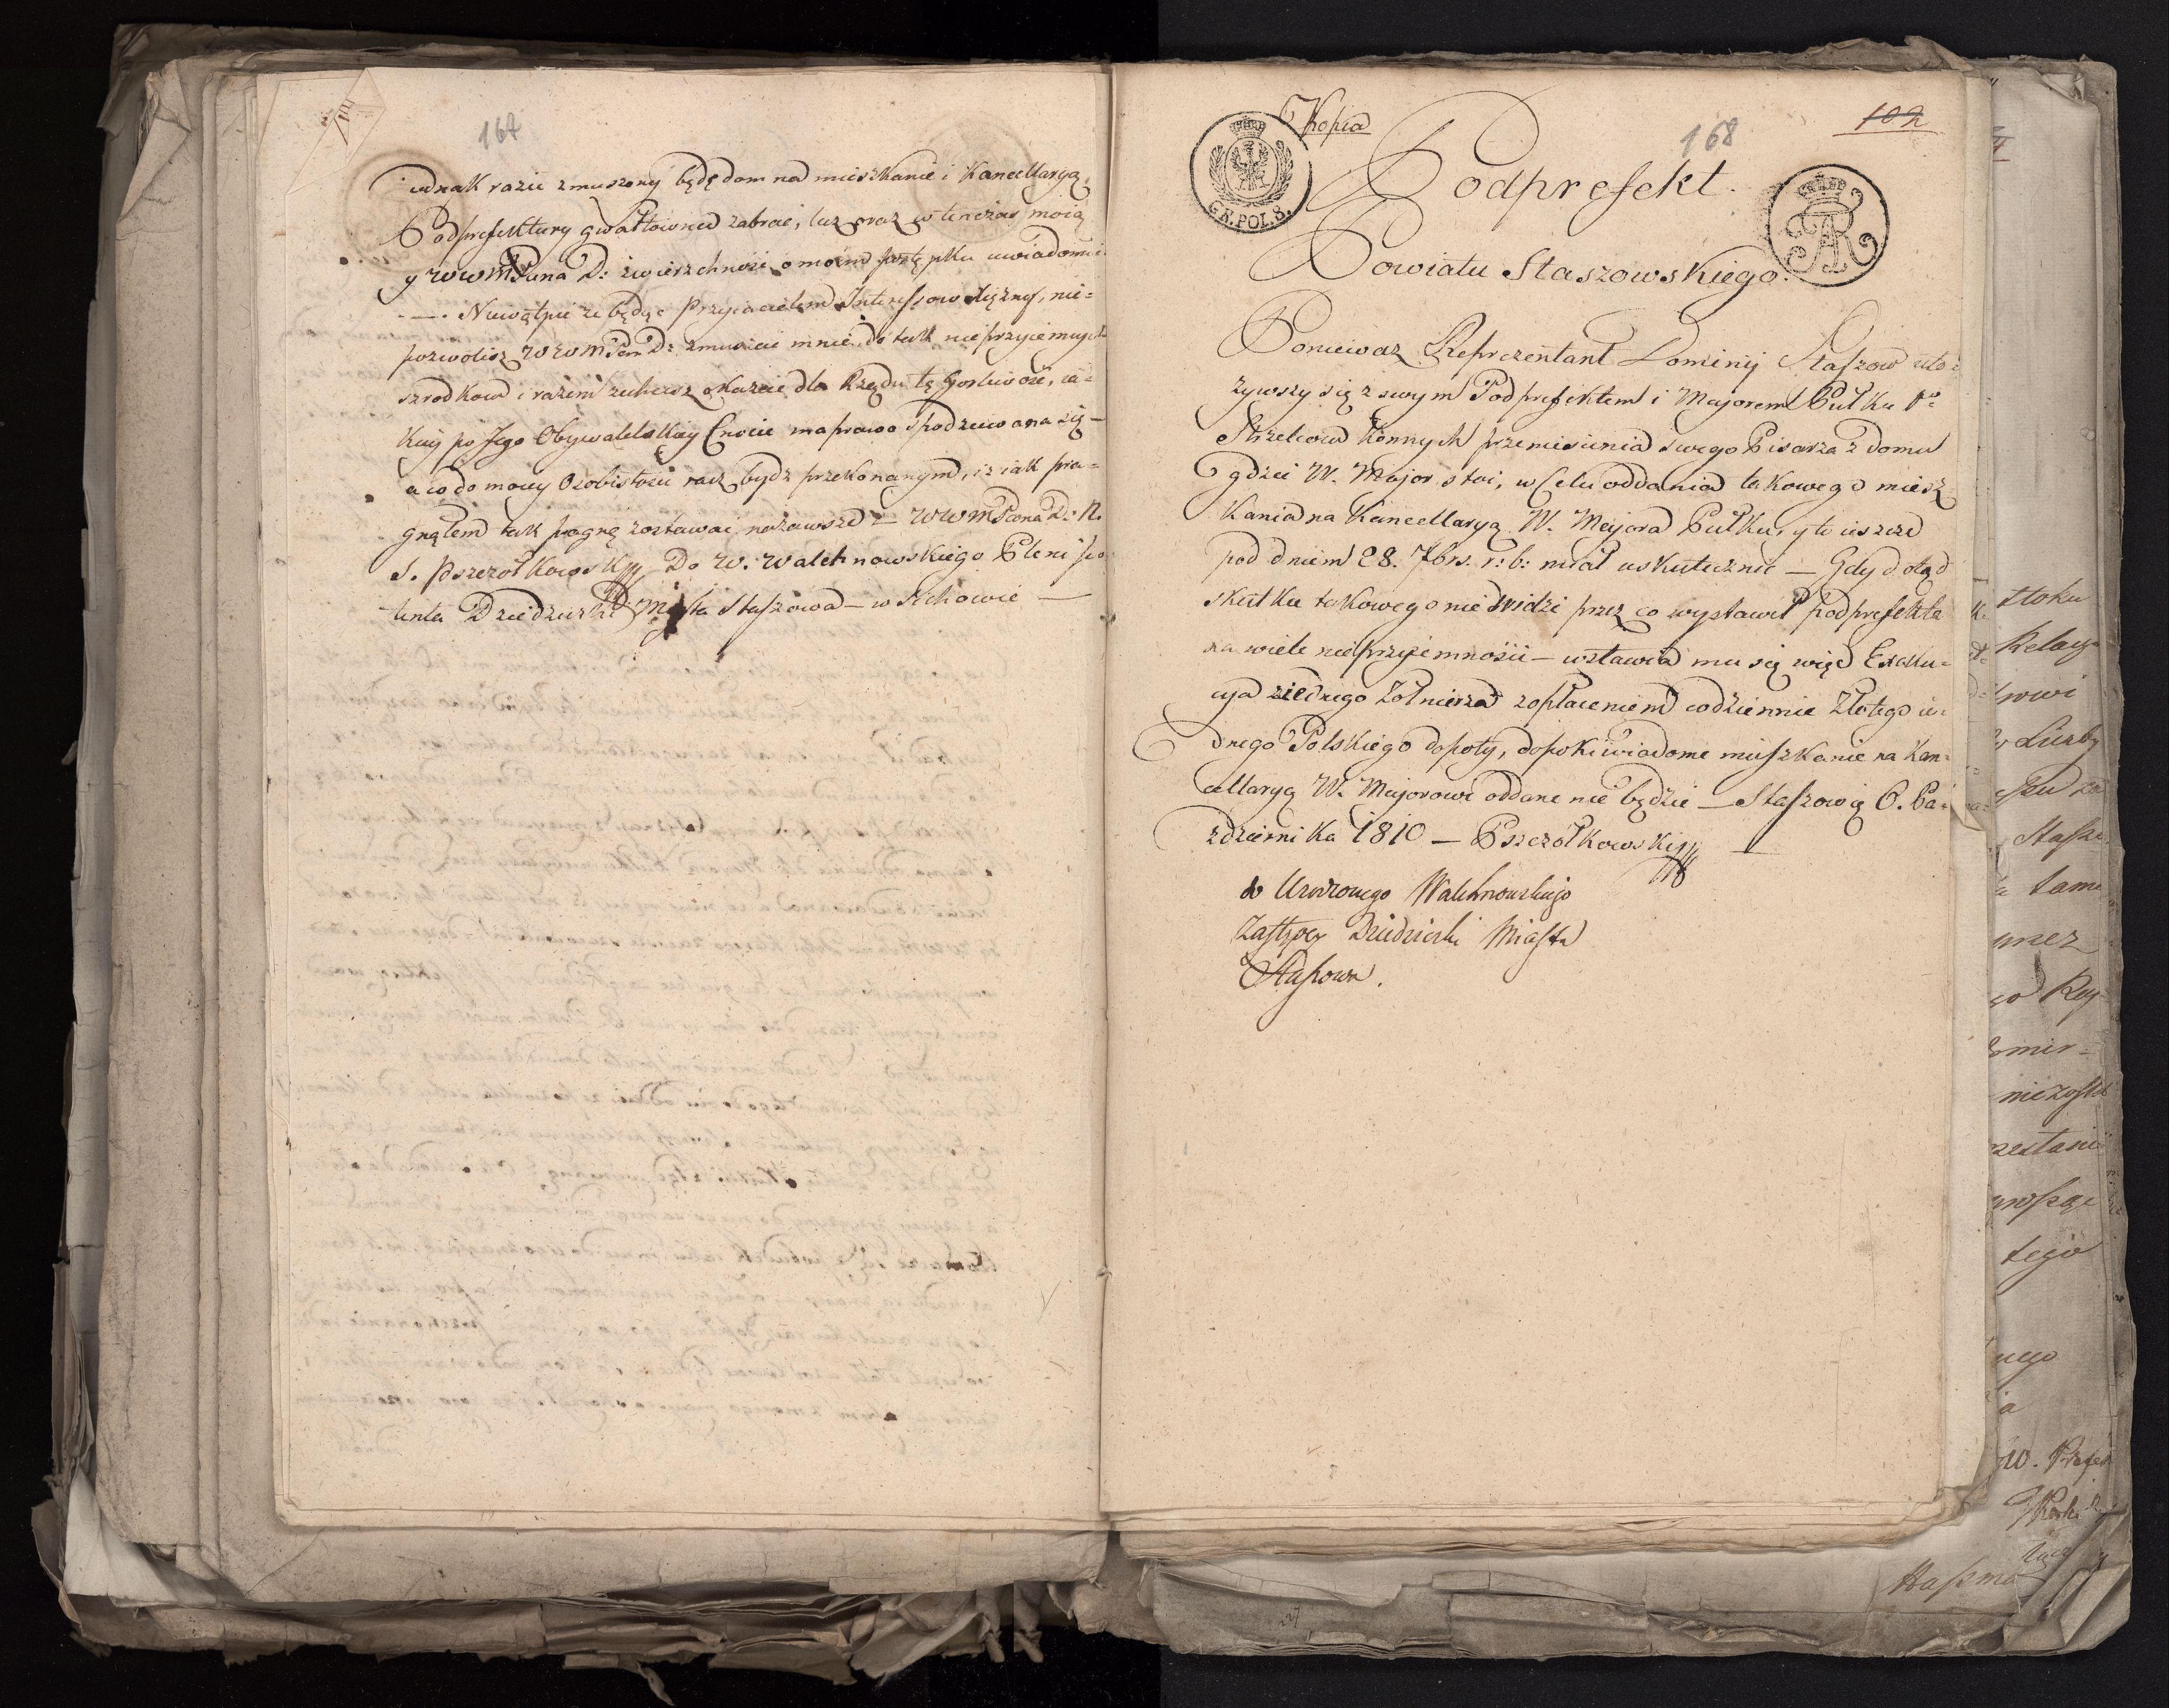 167
iednak razie zmuszony będę dom na mieszkanie i Kancellaryą
Podprefektury gwałtownie zabrać, lecz oraz w tenczas moią
y WWMPana D: zwierzchność o moim postępku uwiadomić
Niewątpię że będąc Przyjacielem Interessow nie=
pozwolisz WWMPan D: zmusić mnie do tak nieprzyiemnych
szrodkow i razem zechcesz okazać dla Rządu tę Gorliwość, ia=
kiey po Jego Obywatelskiey Cnocie ma prawo spodziewana się —
a co do moiey Osobistości racz bydź przekonanym, iż iak pra=
gnąłem tak pragnę zostawać nazawsze — WWMPana D: N.
S. Pszczołkowski Do W. Walchnowskiego Plenipo
tenta Dziedziczki Miasta Staszowa — w Sichowie —
Kopia
168
102
GK. POL. 3.
Podprefekt
Powiatu Staszowskiego.
Ponieważ Reprezentant Dominij Staszow uło=
żywszy się z swym Podprefektem i Majorem Pułku 1o
Strzelcow Konnych przemiesienia swego Pisarza z domu
gdzie W. Major stoi, w Celu oddania takowego miesz
kania na Kancellaryą W. Majora Pułku, y to ieszcze
pod dniem 28. 7brs. r: b: miał uskutecznić — Gdy dotąd
skutku takowego nie widzi przez co wystawił podprefekta
na wiele nieprzyiemności — wstawia mu się więc Exeku=
cya z iednego Żołnierza z opłaceniem codziennie Złotego ie=
dnego Polskiego dopoty, dopoki wiadome mieszkanie na Kan=
cellaryą W. Majorowi oddane nie będzie — Staszow 6. Pa=
zdziernika 1810 — Pszczołkowski
do Urodzonego Walchnowskiego
Zastępcy Dziedziczki Miasta
Staszowa.
ttoku
Relacy=
nego
tego